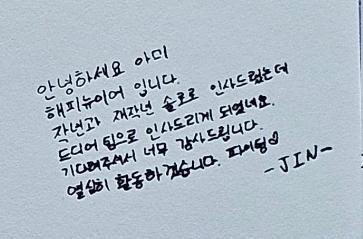 안녕하세요 아미
해피뉴이어 입니다.
작년과 재작년 솔로로 인사드렸는데
드디어 팀으로 인사드리게 되었네요.
기다려주셔서 너무 감사드립니다.
열심히 활동하겠습니다. 파이팅♡
-JIN-